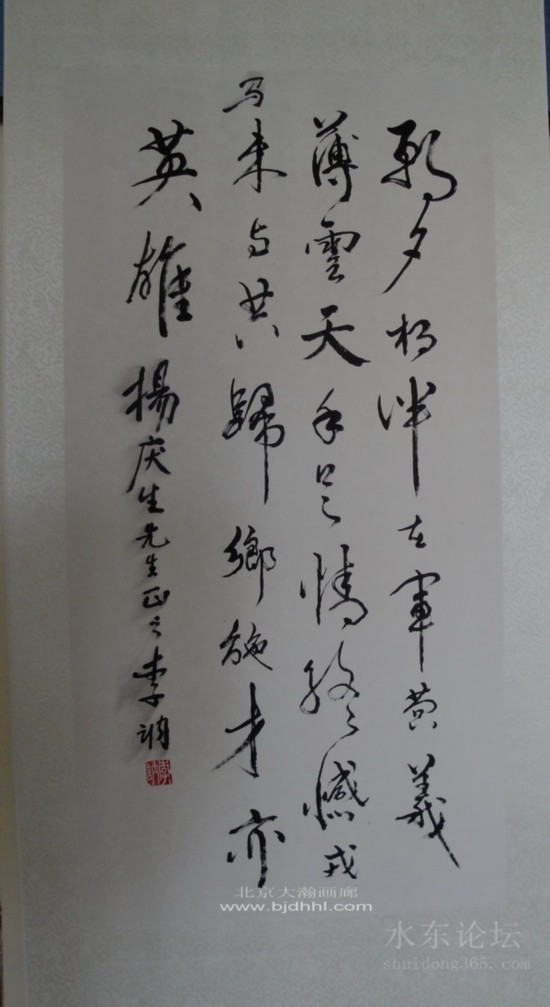 朝夕相伴在軍营義
薄雲天手足情终憾戎
马未与共歸鄉施才亦
英雄 楊庆生先生正之 李讷
北京大瀚画廊
www.bjdhhl.com
水东论坛
shuidong365.com